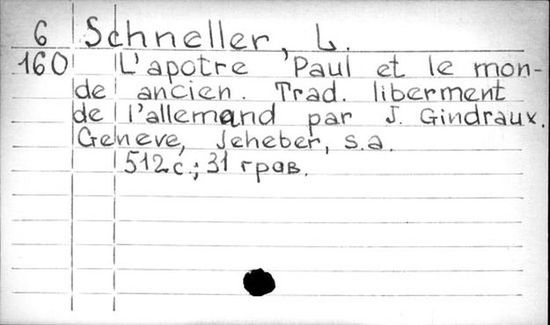 6 Schneller, L.
160 L'apotre Paul et le mon-
de ancien. Trad. liberment
de l'allemand par J. Gindraux.
Geneve, Jeheber, s.a.
512с.; 31 грав.